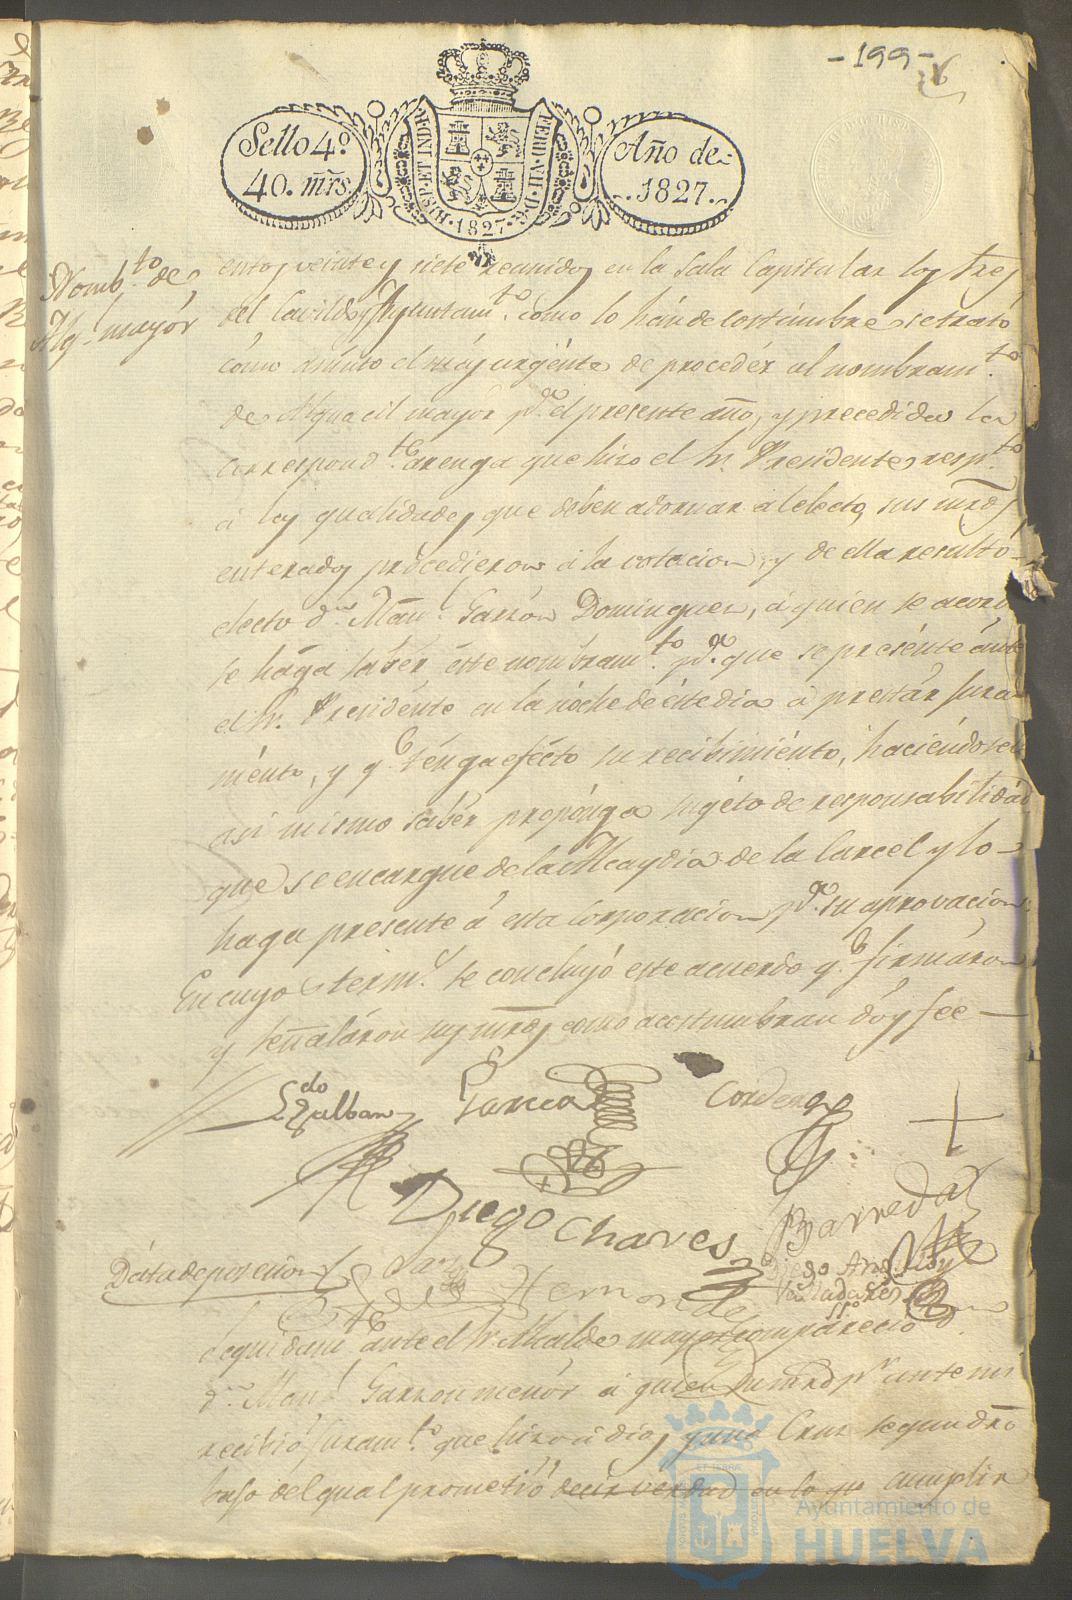 -199-
Sello 4º
40. mrs
HISP. ET IND. R.
FERD. VII. D. G.
1827
Año de
1827.
Nomb.to de
Alg.l mayór
entos veinte y siete reunidos en la Sala Capitular los Sres
del Cavildo y Ayuntam.to como lo hán de costúmbre se trató
cómo asúnto el más urgénte de procedér al nombram.to
de Alguacil mayor p.a el presente año, y precedida la
correspond.te arenga que hizo el Sr. Presidente resp.to
á las qualidades que deben adornar al electo, sus mrds
enterados procedieron á la votacion, y de ella resultó
electo d.n Man.l Garzón Dominguez, á quien se acordó
se hága saber éste nombram.to p.a que se presénte ánte
el Sr. Presidénte en la nóche de éste dia á prestár jura
ménto, y q.e ténga efécto su recibimiénto, haciéndosele
asi mismo sabér propónga sugéto de responsabilidád
que se encargue de la Alcaydia de la Carcel y lo
haga presente á esta Corporacion p.a su aprovacion
En cuyo term.o se concluyó este acuerdo q.e firmáron
y señaláron sus mrds como acostumbran dóy fee
L.do Zalban
Garcia
Cordero
Diego Chaves
Barreda
Dáta de posesion
Hernande
Diego And.
Seguidam.te ánte el Sr. Alcalde mayor compareció
d.n Man.l Garzon menór á quien su mrd p.r ante mi
recibió juram.to que hizo á dios y una Cruz segun dro
bajo del qual prometió decir verdad en lo que cumplir
Ayuntamiento de
HUELVA